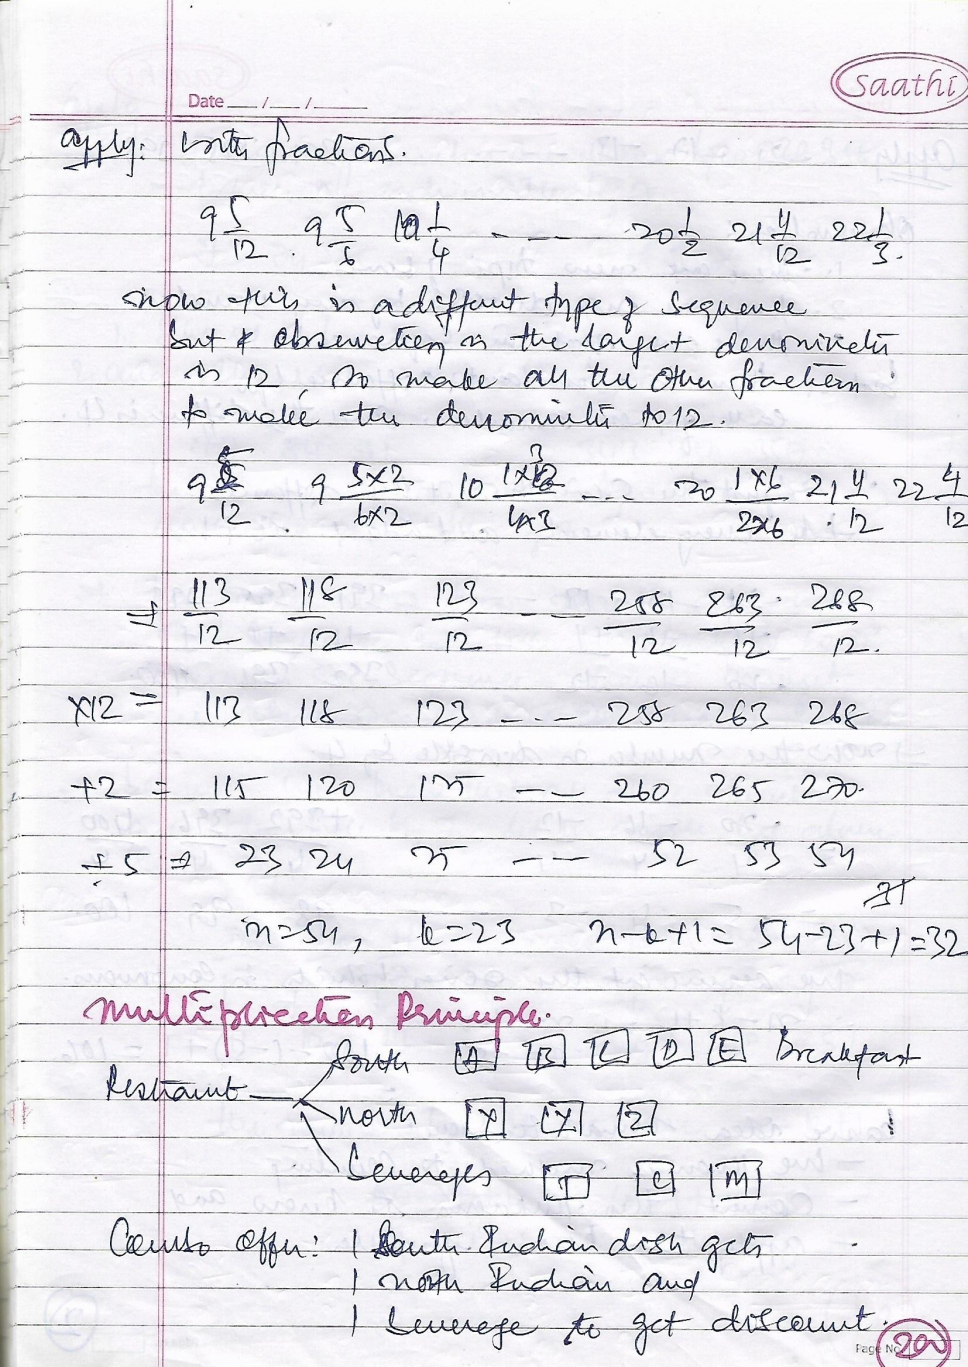 Saathi
Date ___/___/______
apply: with fractions.
9 5/12 . 9 5/6 10 1/4 - - - - 20 1/2 21 4/12 22 1/3.
now this is a different type of sequence
but observation is the largest denominator
is 12, so make all the other fraction
to make the denominator to 12.
9 5/12 . 9 5×2/6×2 10 1×3/4×3 - - - 20 1×6/2×6 21 4/12 22 4/12
⇒ 113/12 118/12 123/12 - - - 258/12 263/12 268/12.
×12 = 113 118 123 - - - 258 263 268
+2 = 115 120 125 - - - 260 265 270.
÷5 ⇒ 23 24 25 - - - 52 53 54
n=54, k=23 n-k+1= 54-23+1=32
Multiplication Principle.
South A B C D E Breakfast
Restraunt
North X Y Z
beverages T C M
Combo offer: 1 South Indian dish gets
1 north Indian and
1 beverege to get discount.
Page No.